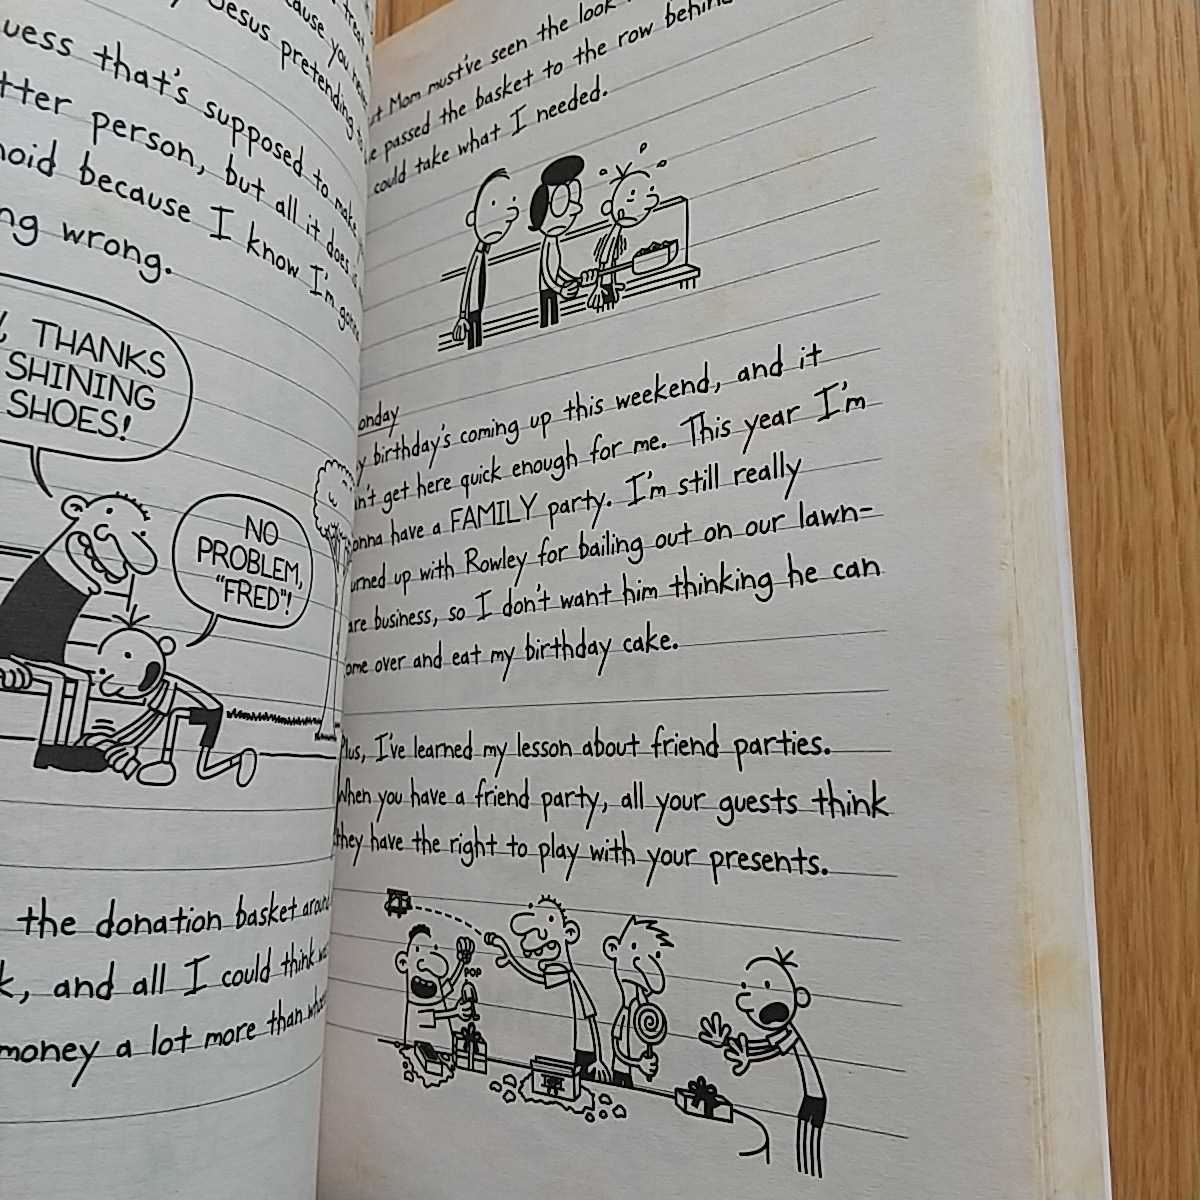 Jesus pretending
that's supposed to make
person, but all it does is
because I know I'm gonna
wrong.
THANKS
SHINING
SHOES!
NO
PROBLEM,
"FRED"!
the donation basket around
and all I could think
money a lot more than
Mom must've seen the look
passed the basket to the row behind
could take what I needed.
birthday's coming up this weekend, and it
get here quick enough for me. This year I'm
have a FAMILY party. I'm still really
up with Rowley for bailing out on our lawn-
business, so I don't want him thinking he can
over and eat my birthday cake.
Plus, I've learned my lesson about friend parties.
When you have a friend party, all your guests think
they have the right to play with your presents.
POP